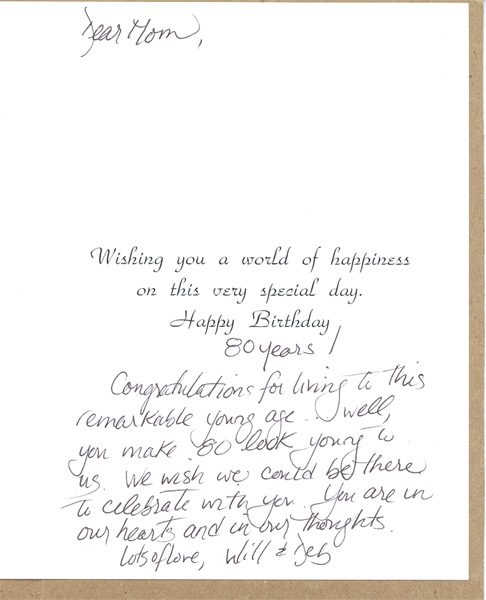 Dear Mom,
Wishing you a world of happiness
on this very special day.
Happy Birthday
80 years!
Congratulations for living to this
remarkable young age. Well,
you make 80 look young to
us. We wish we could be there
to celebrate with you. You are in
our hearts and in our thoughts.
Lots of love, Will & Deb